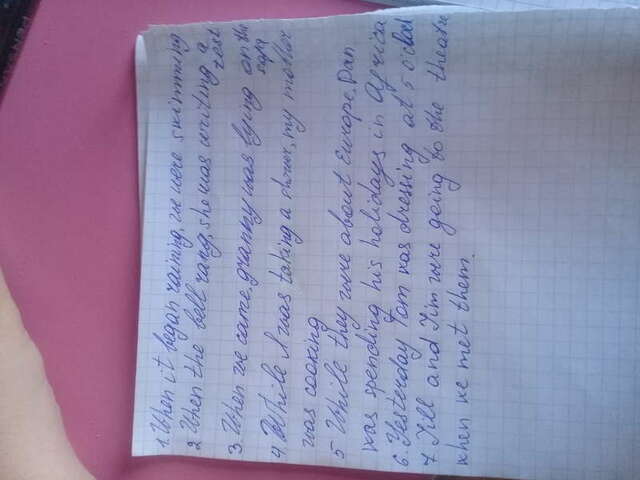 1. When it began raining, we were swimming
2 When the bell rang, she was writing a
test
3. When we came, granny was lying on the
sofa
4 While I was taking a shower, my mother
was cooking
5 While they were about Europe, Dan
was spending his holidays in Africa
6. Yesterday Tom was dressing at 5 o'clock
7 Jill and Jim were going to the theatre
when we met them.